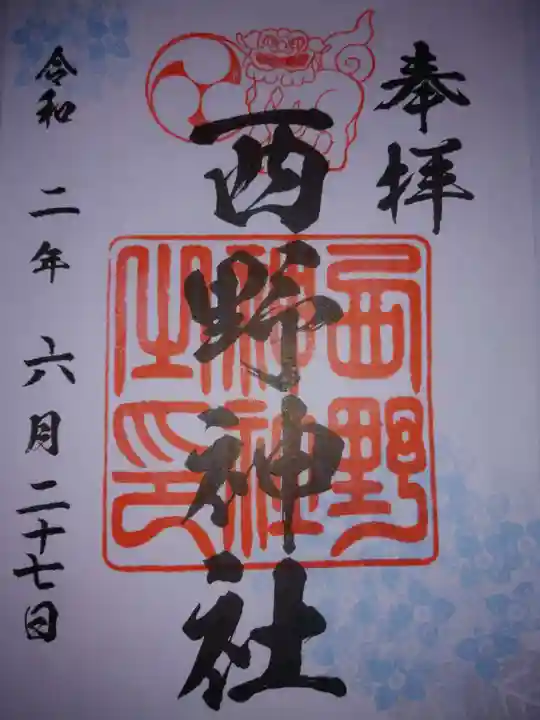 奉拝
西野神社
西野神社之印
令和二年六月二十七日